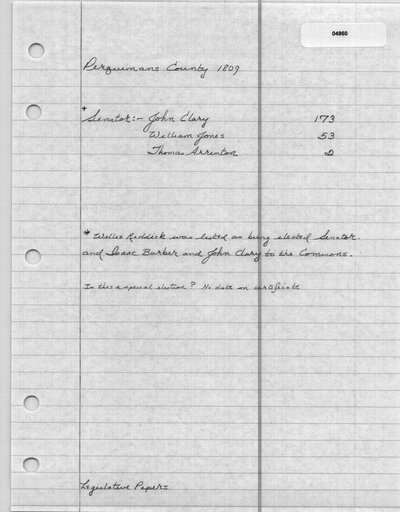 04860
Perquimans County 1809
* Senator:- John Clary 173
William Jones 53
Thomas Arrinton 2
* Willis Riddick was listed as being elected Senator.
and Isaac Barber and John Clary to the Commons.
Is this a special election? No date on certificate
Legislative Papers